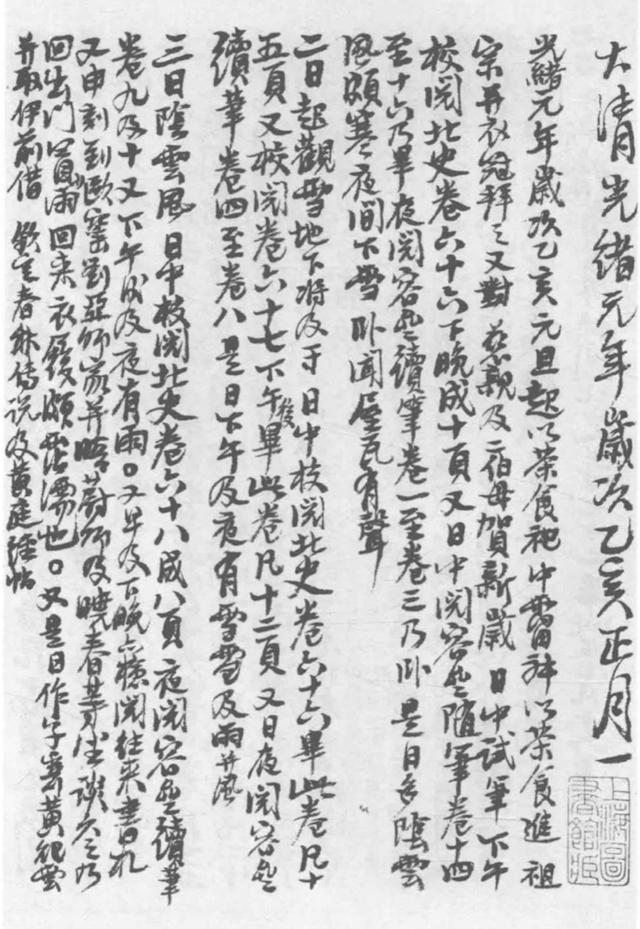 大清光緒元年歲次乙亥正月一
光緒元年歲次乙亥元旦起以茶食祀中霤神以茶食進祖
宗并衣冠拜之又對慈親及二伯母賀新歲日中試筆下午
校閱北史卷六十六下晚成十頁又日中閱容齋隨筆卷十四
至十六乃畢夜閱容齋續筆卷一至卷三乃卧是日多陰雲
風頗寒夜間下雪卧聞屋瓦有聲
二日起觀雪地下將及寸日中校閱北史卷六十六畢此卷凡十
五頁又校閱卷六十七下午後畢此卷凡十二頁又日夜閱容齋
續筆卷四至卷八是日下午及夜有雪雪及雨并風
三日陰雲風日中校閱北史卷六十八成八頁夜閱容齋續筆
卷九及十又下午後及夜有雨又早及下晚檢閱往來書札
又申刻到歐窰劉亞師家并晤蔚師及曉春等坐談久之乃
回出門買雨回來衣履頗霑濡也又是日作字寄黃
并取伊前借欽定春秋傳說及黃庭經帖
上海圖書館藏